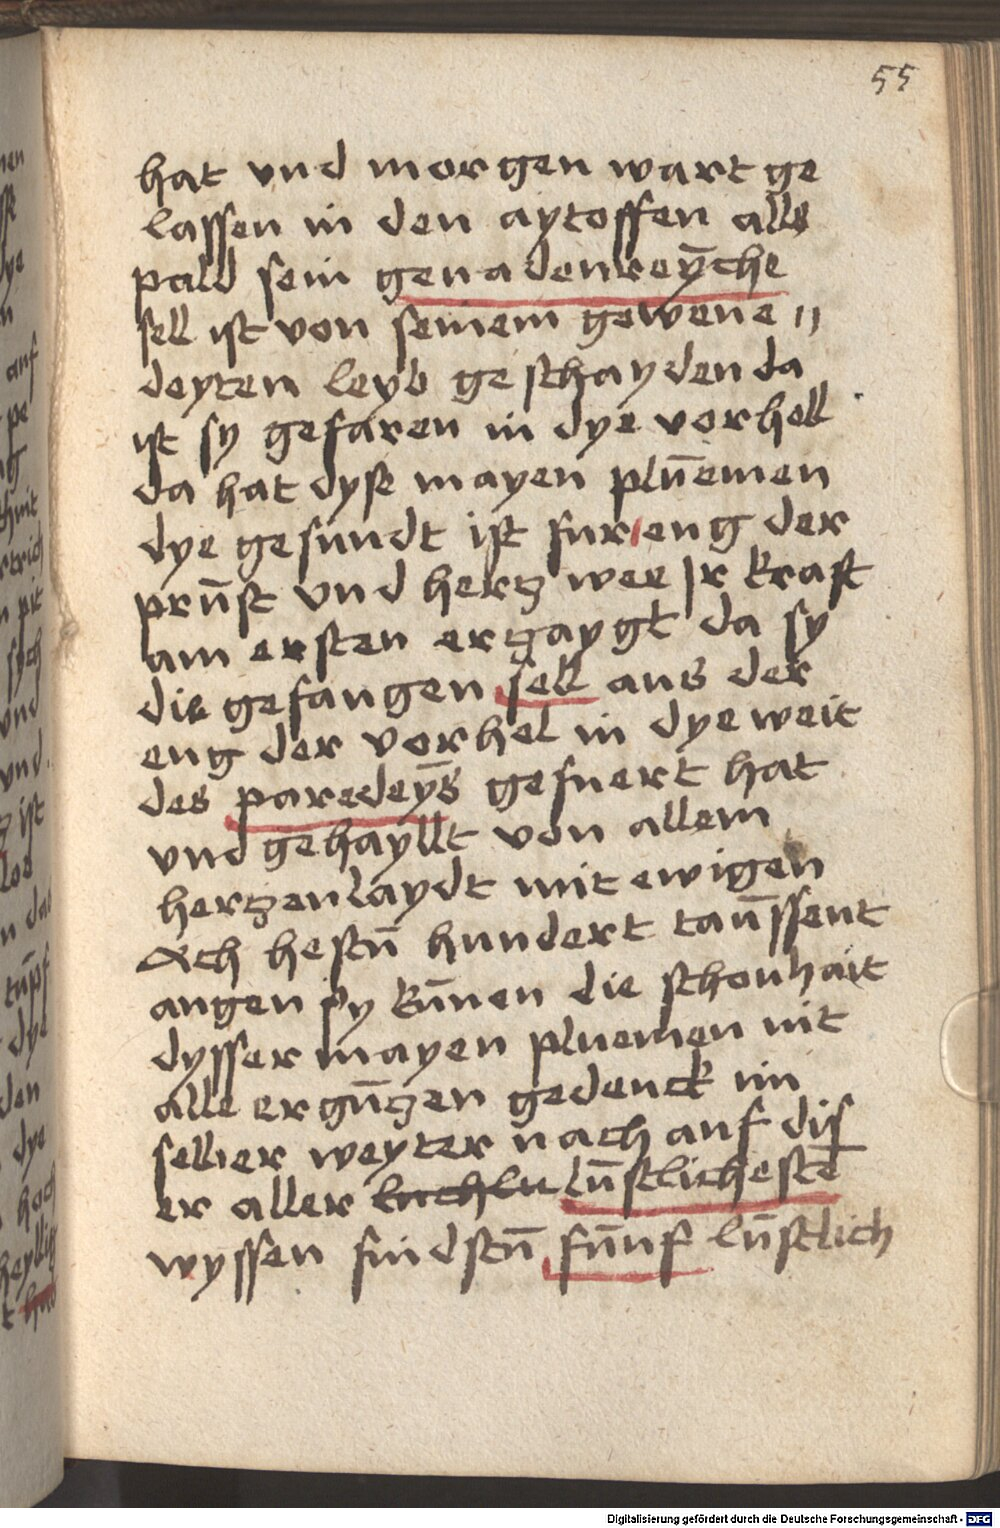 55
hat vnd morgen wart ge
lassen in den aytoffen alls
pald sein genadenreÿche
sell ist von seinem gewene〃
deyten leyb geschayden da
ist sy gefaren in dye vorhell
da hat dyse mayen plūemen
dye gesundt ist fur eng der
prūst vnd hertz wee Ir kraft
am ersten ertzaygt da sy
die gefangen sell aus der
eng der vorhel in dye weit
des paredeÿs gefuert hat
vnd gehayllt von allem
hertzenlaydt mit ewigen
Ach hestū hundert taūssent
augen sy kūnen die schonhait
dysser mayen pluemen nit
alle ergūtzen gedenck im
selber weyter nach auf dis
er aller lūstlichestē
wyssen findstū fūnf lūstlich
Digitalisierung gefördert durch die Deutsche Forschungsgemeinschaft - DFG